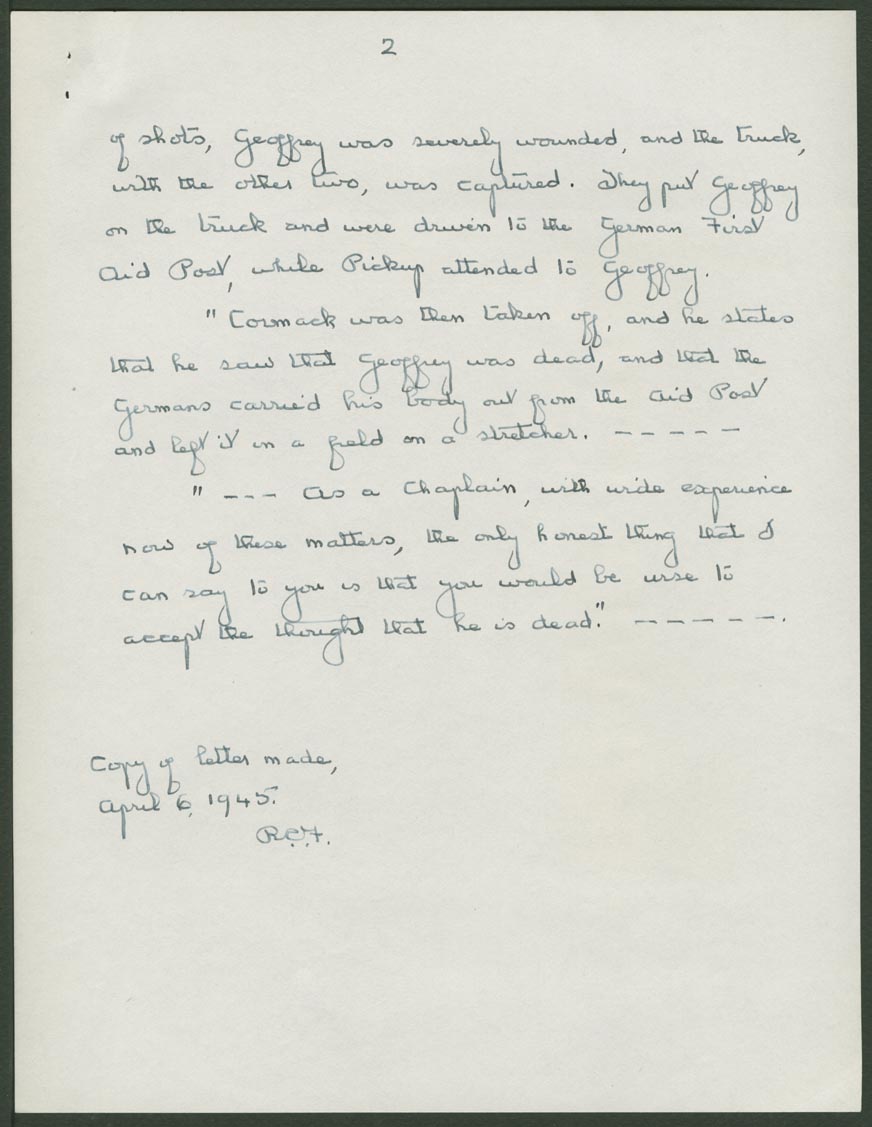 2
of shots, Geoffrey was severely wounded, and the truck,
with the other two, was captured. They put Geoffrey
on the truck and were driven to the German First
Aid Post, while Pickup attended to Geoffrey.
" Cormack was then taken off, and he states
that he saw that Geoffrey was dead, and that the
Germans carried his body out from the Aid Post
and left it in a field on a stretcher. – – – – –
" – – – As a Chaplain, with wide experience
now of these matters, the only honest thing that I
can say to you is that you would be wise to
accept the thought that he is dead." – – – – –.
Copy of letter made,
April 6, 1945.
R.C.F.